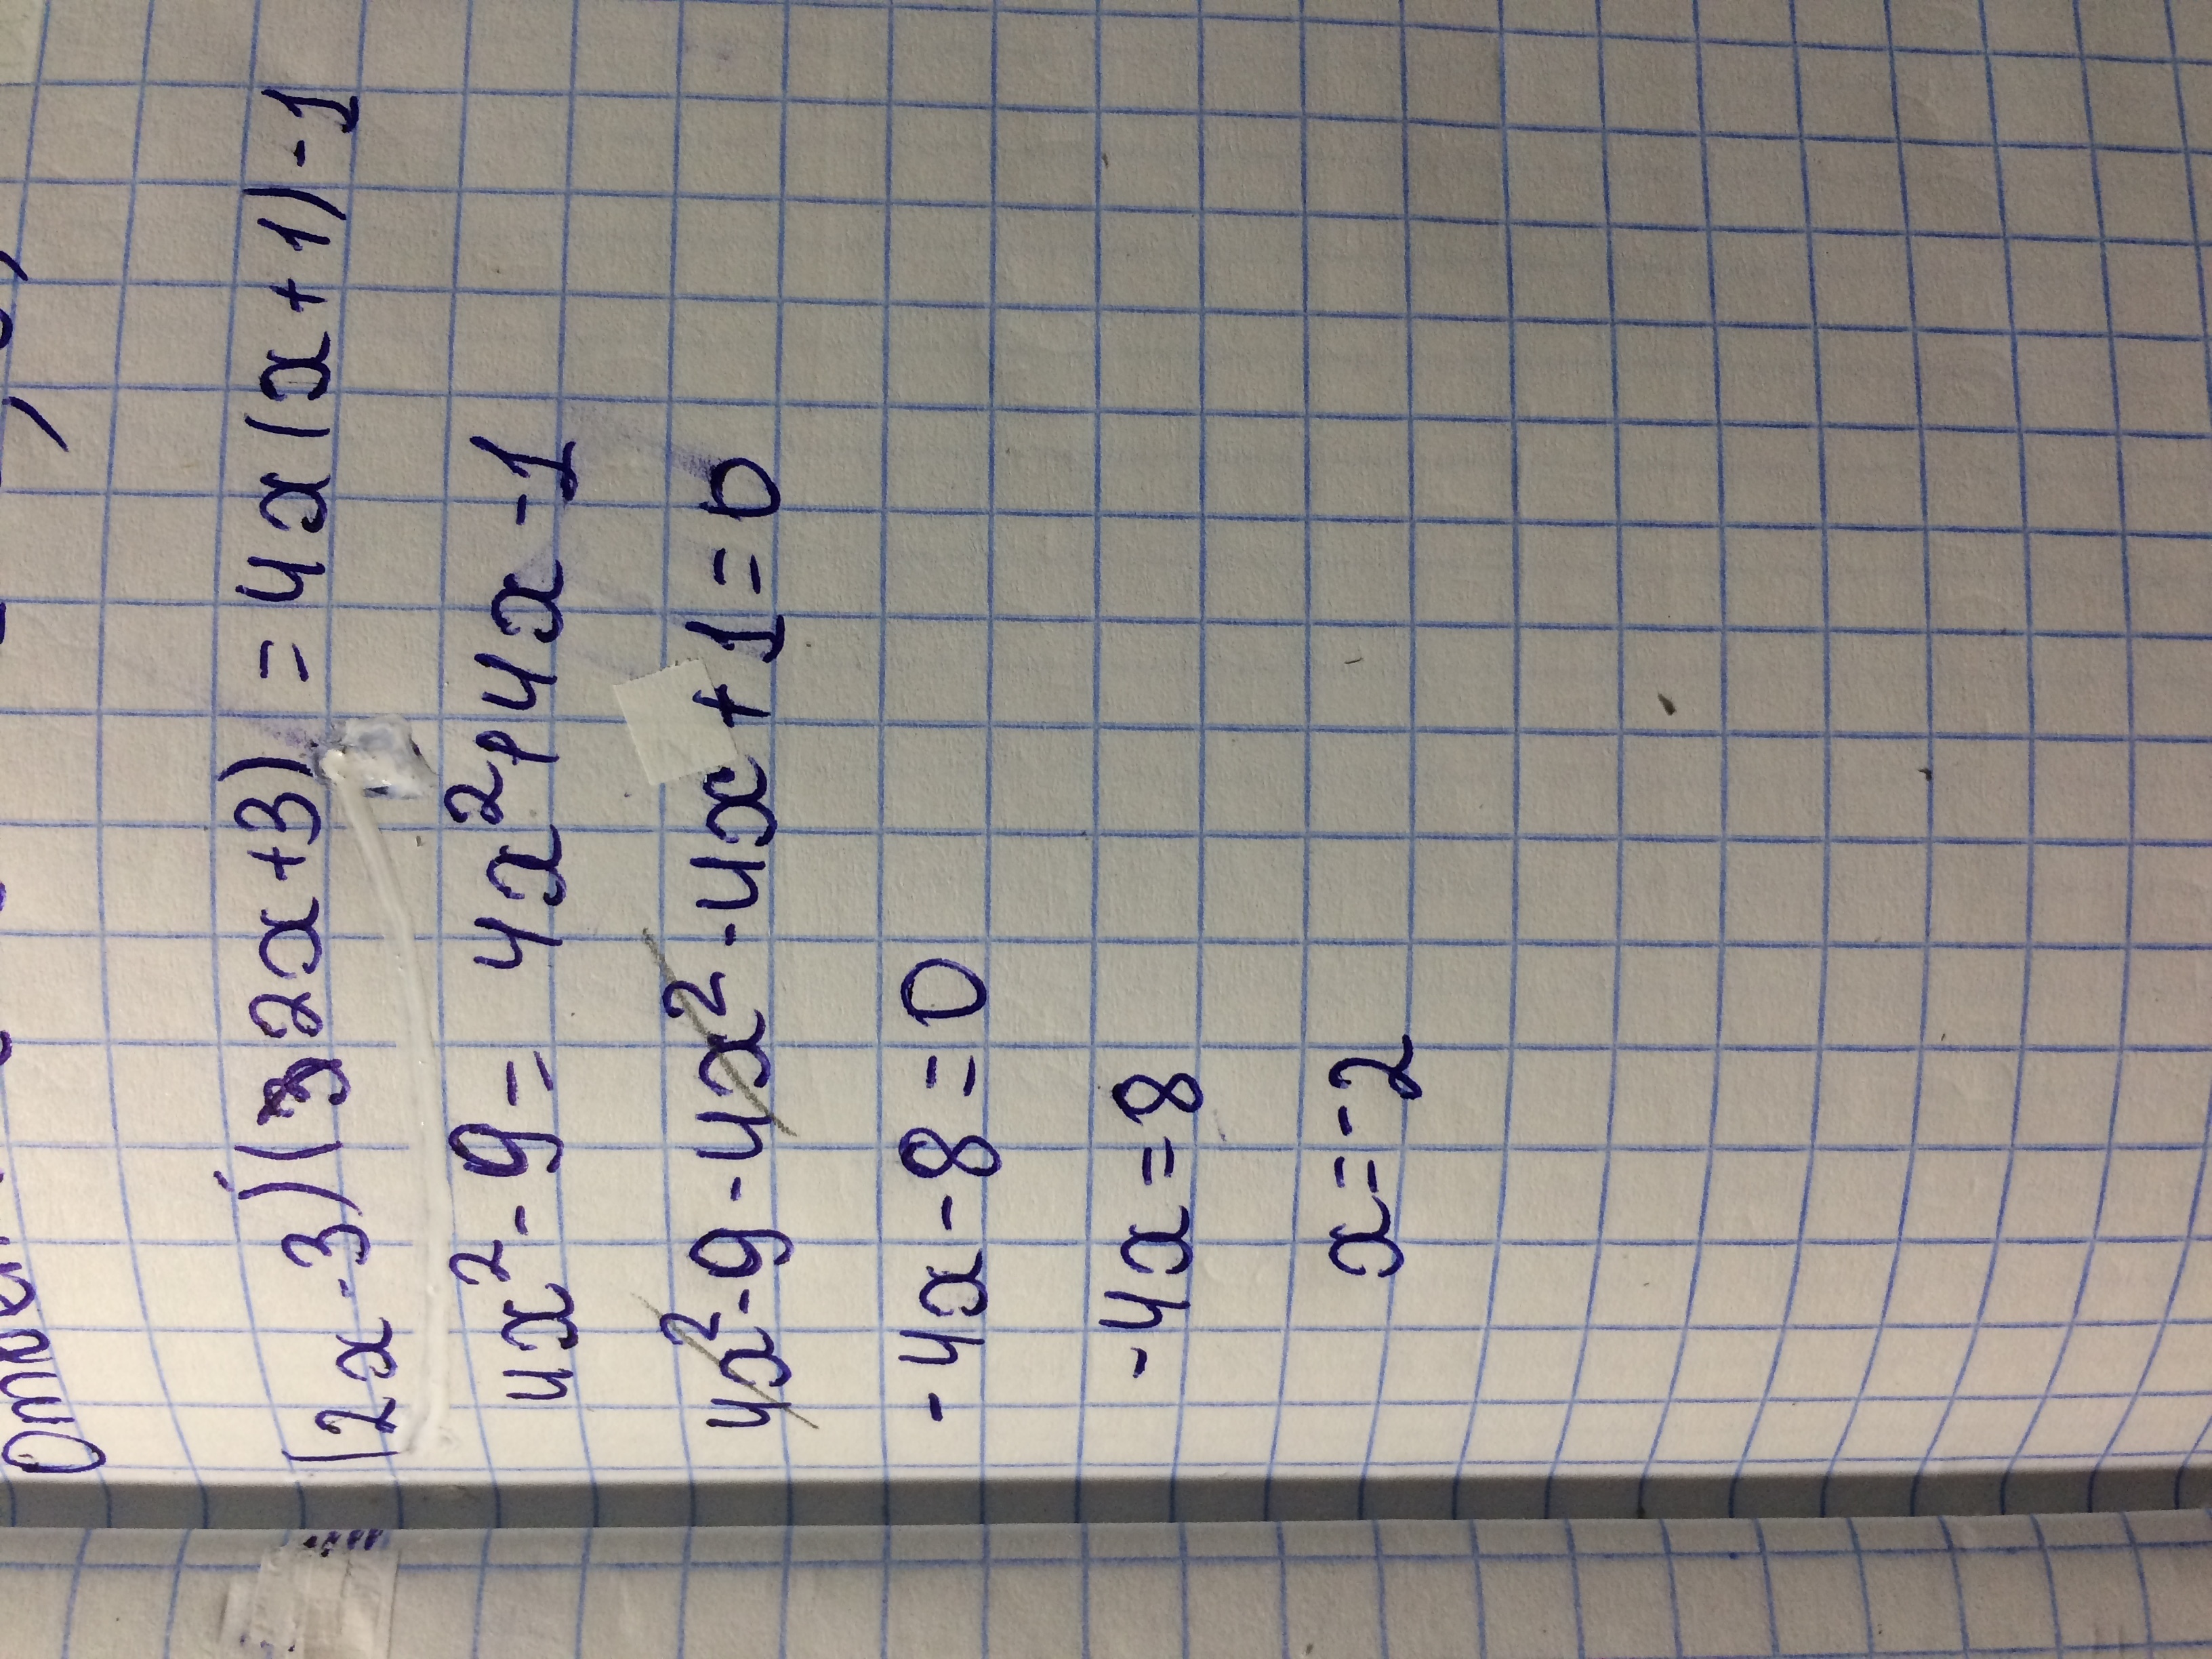 (2x-3)(2x+3) = 4x(x+1)-1
4x²-9= 4x²+4x-1
4x²-9-4x²-4x+1=0
-4x-8=0
-4x=8
x=-2